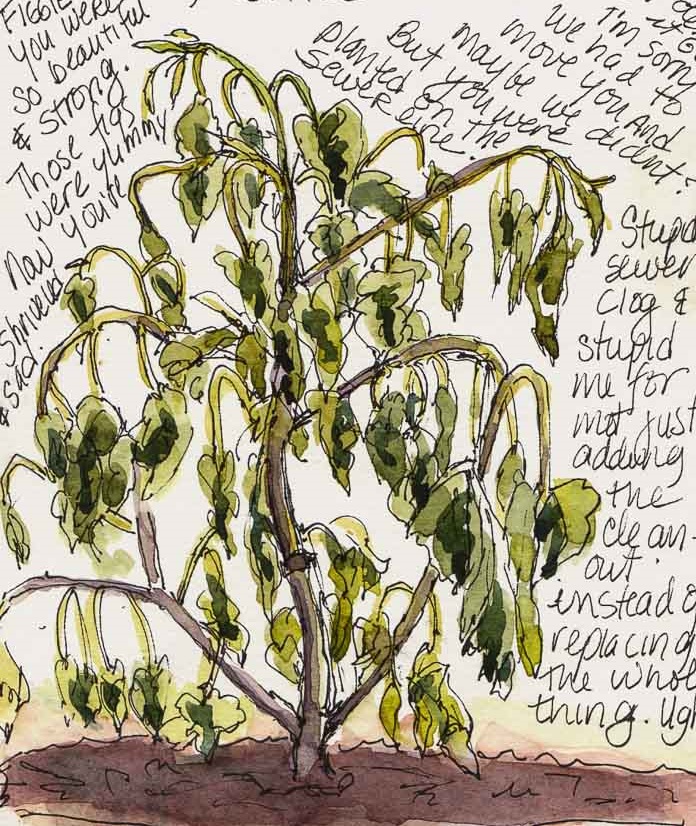 FIGGIE
you were
so beautiful
& strong.
Those figs
were yummy
Now you're
shriveled
& sad.
I'm sorry
we had to
move you And
maybe we didn't.
But you were
planted on the
sewer line.
Stupid
sewer
clog &
stupid
me for
not just
adding
the
clean-
out
instead o
replacing
the whol
thing. Ugh